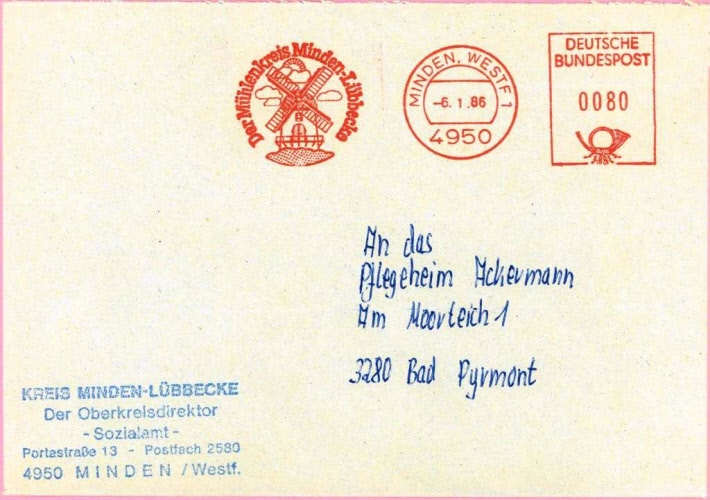 Der Mühlenkreis Minden-Lübbecke
MINDEN, WESTF 1
-6. 1.86
4950
DEUTSCHE
BUNDESPOST
0080
An das
Pflegeheim Ackermann
Am Moorteich 1
3280 Bad Pyrmont
KREIS MINDEN-LÜBBECKE
Der Oberkreisdirektor
- Sozialamt -
Portastraße 13 - Postfach 2580
4950 MINDEN /Westf.